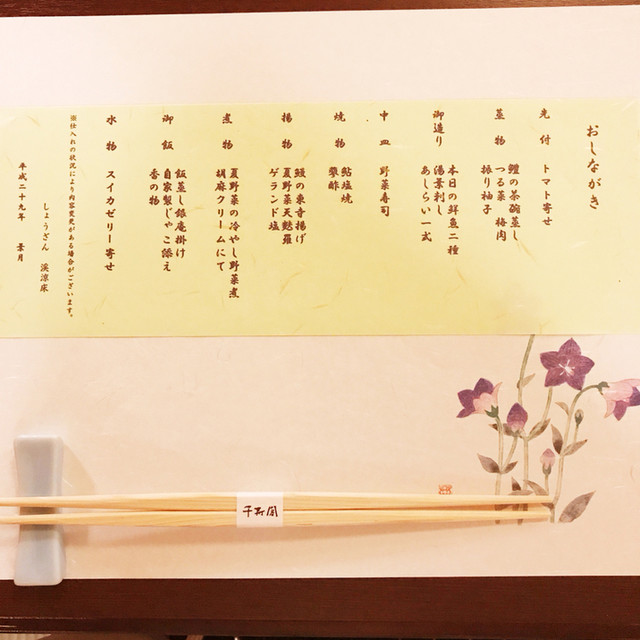 おしながき
先付 トマト寄せ
蒸物 鱧の茶碗蒸し
つる菜 梅肉
振り柚子
御造り 本日の鮮魚二種
湯葉刺し
あしらい一式
中皿 野菜寿司
焼物 鮎塩焼
蓼酢
揚物 鰻の東寺揚げ
夏野菜天麩羅
ゲランド塩
煮物 夏野菜の冷やし野菜煮
胡麻クリームにて
御飯 飯蒸し銀庵掛け
自家製じゃこ添え
香の物
水物 スイカゼリー寄せ
※仕入れの状況により内容変更がある場合がございます。
しょうざん 渓涼床
平成二十九年 葉月
千寿閣